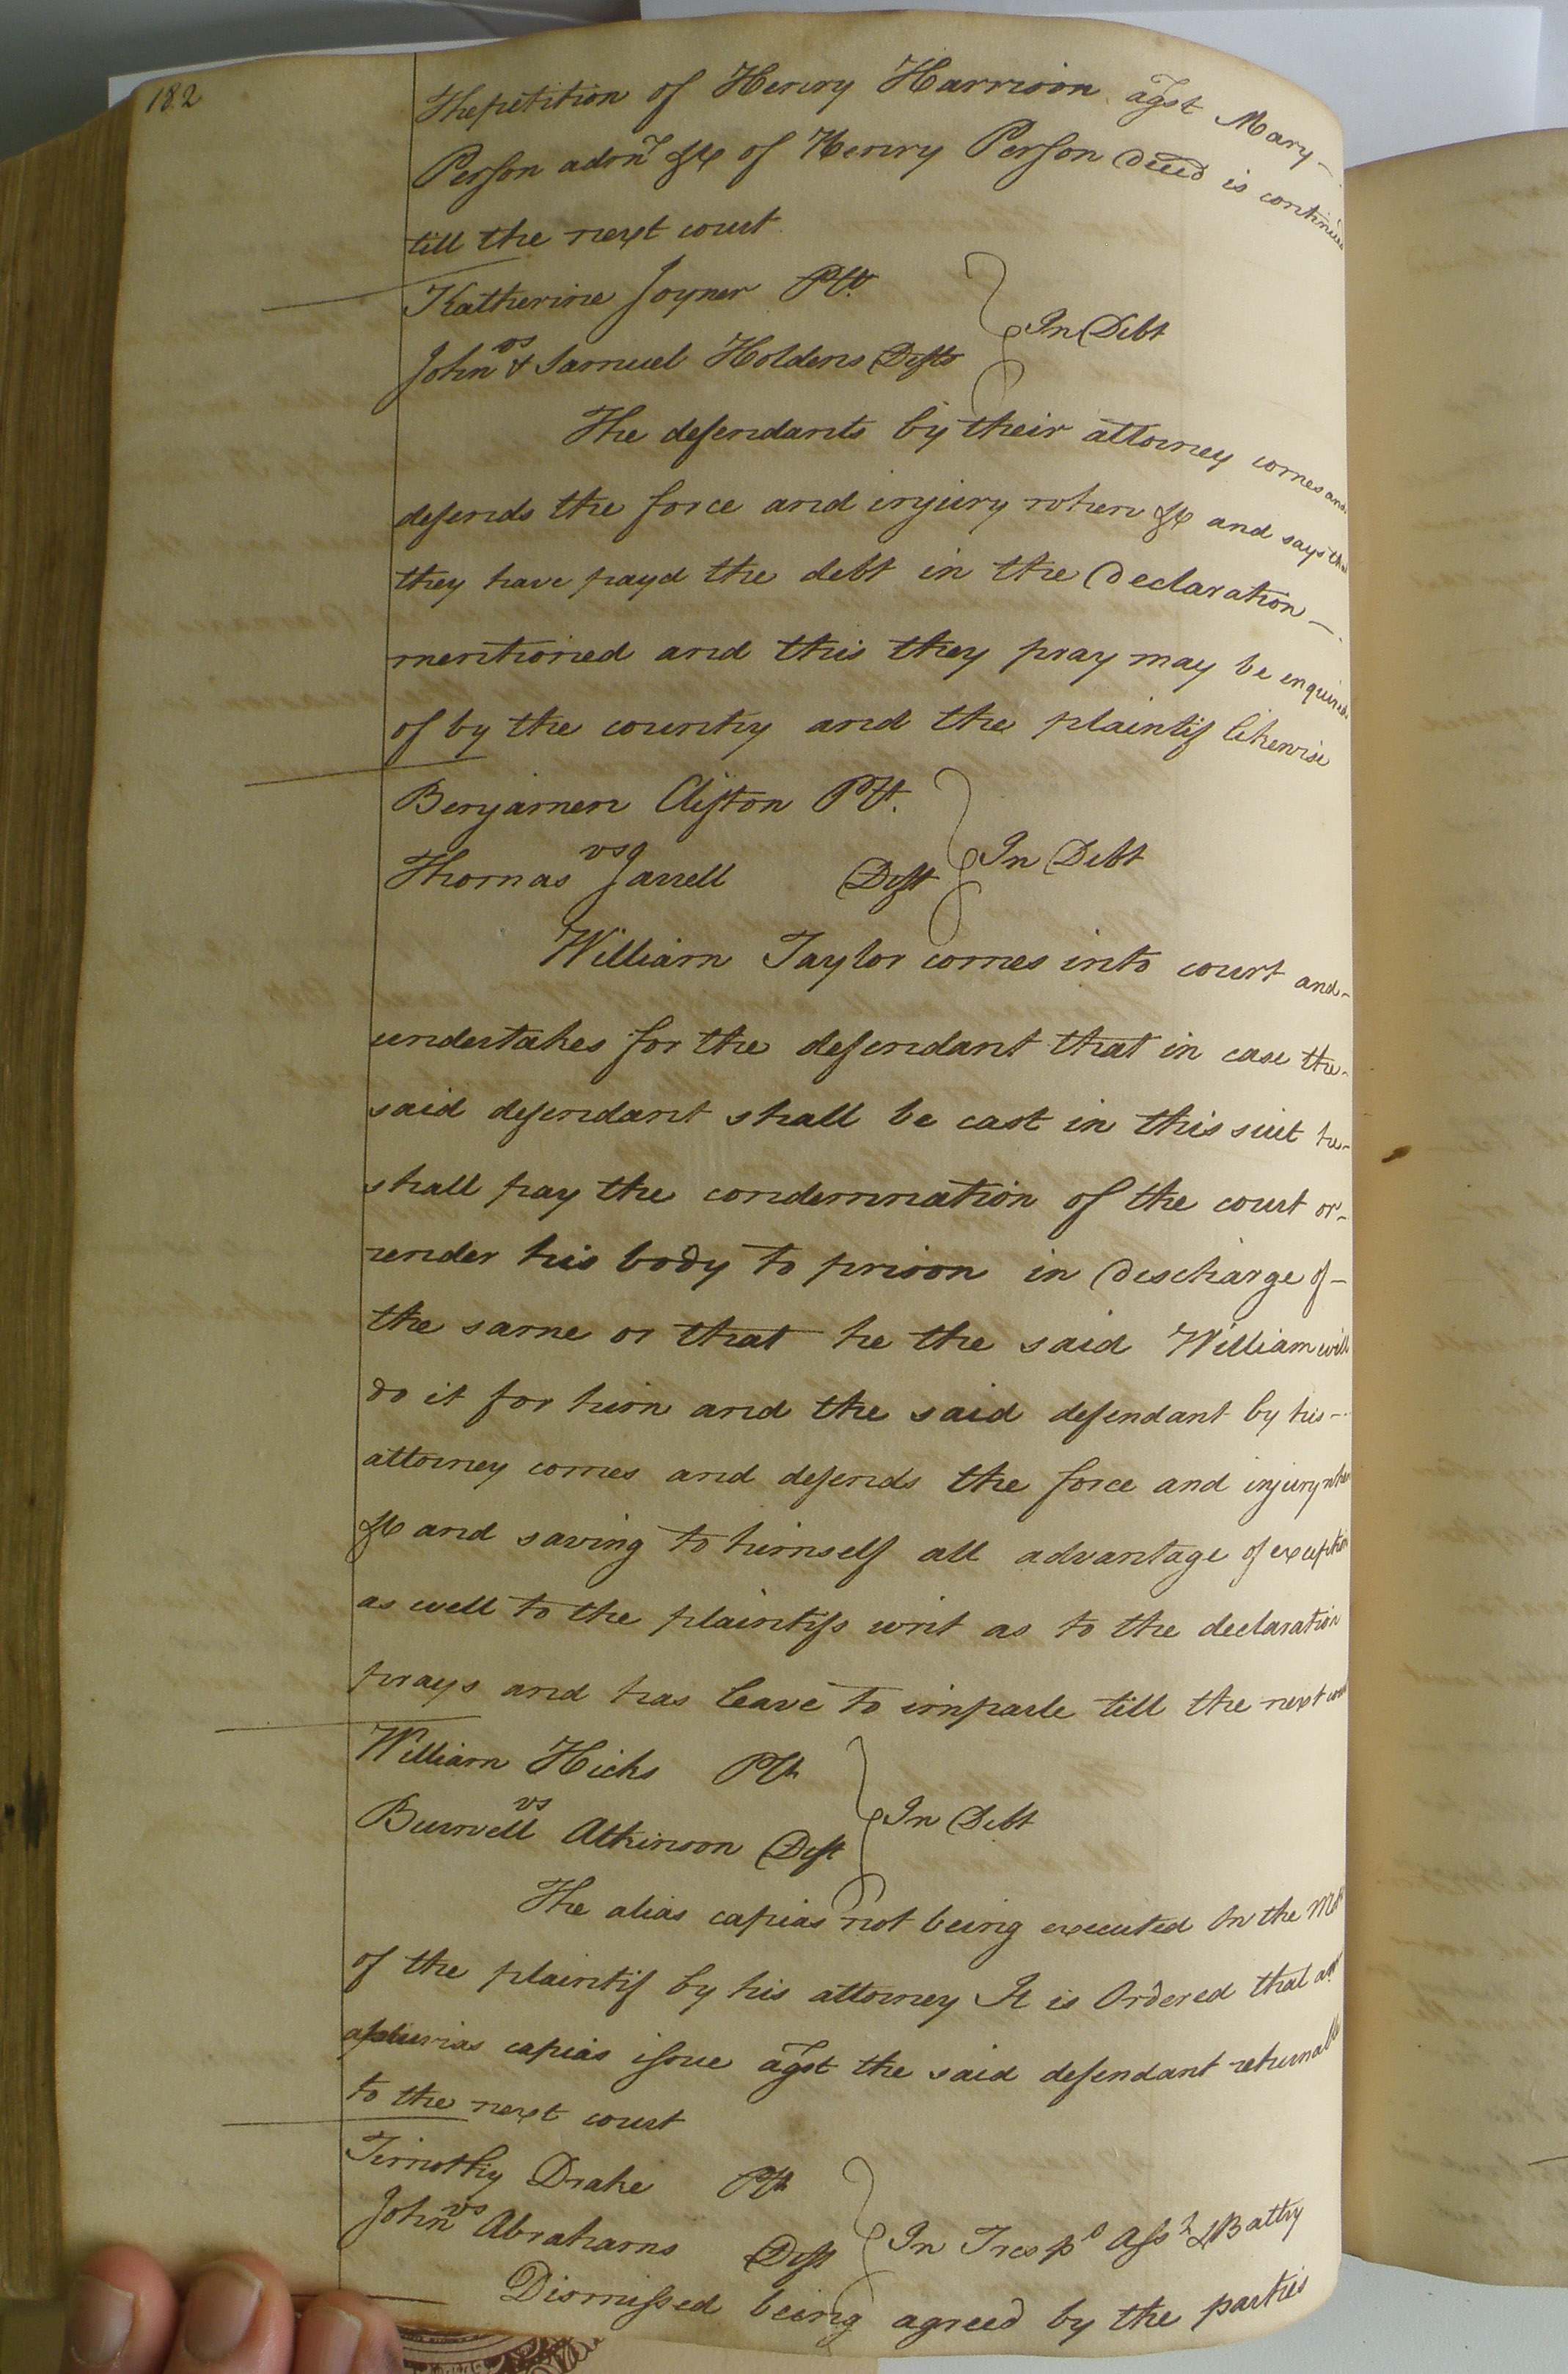 182
The petition of Henry Harrison agst Mary
Person admr &c of Henry Person Deced is continued
till the next court
Katherine Joyner Plt.
vs
John & Samuel Holdens Defts
In Debt
The defendants by their attorney comes and
defends the force and injury when &c and says that
they have payd the debt in the Declaration
mentioned and this they pray may be enquired
of by the country and the plaintif likewise
Benjamen Clifton Plt.
vs
Thomas Jarrell Deft
In Debt
William Taylor comes into court and
undertakes for the defendant that in case the
said defendant shall be cast in this suit he
shall pay the condemnation of the court or
render his body to prison in Discharge of
the same or that he the said William will
do it for him and the said defendant by his
attorney comes and defends the force and injury when
&c and saving to himself all advantage of exception
as well to the plaintifs writ as to the declaration
prays and has leave to imparle till the next court
William Hicks Plt
vs
Burwell Atkinson Deft
In Debt
The alias capias not being executed On the
of the plaintif by his attorney It is Ordered that
a plurias capias issue agst the said defendant returnable
to the next court
Timothy Drake Plt
vs
John Abrahams Deft
In Tresps Asst & Battry
Dismissed being agreed by the parties